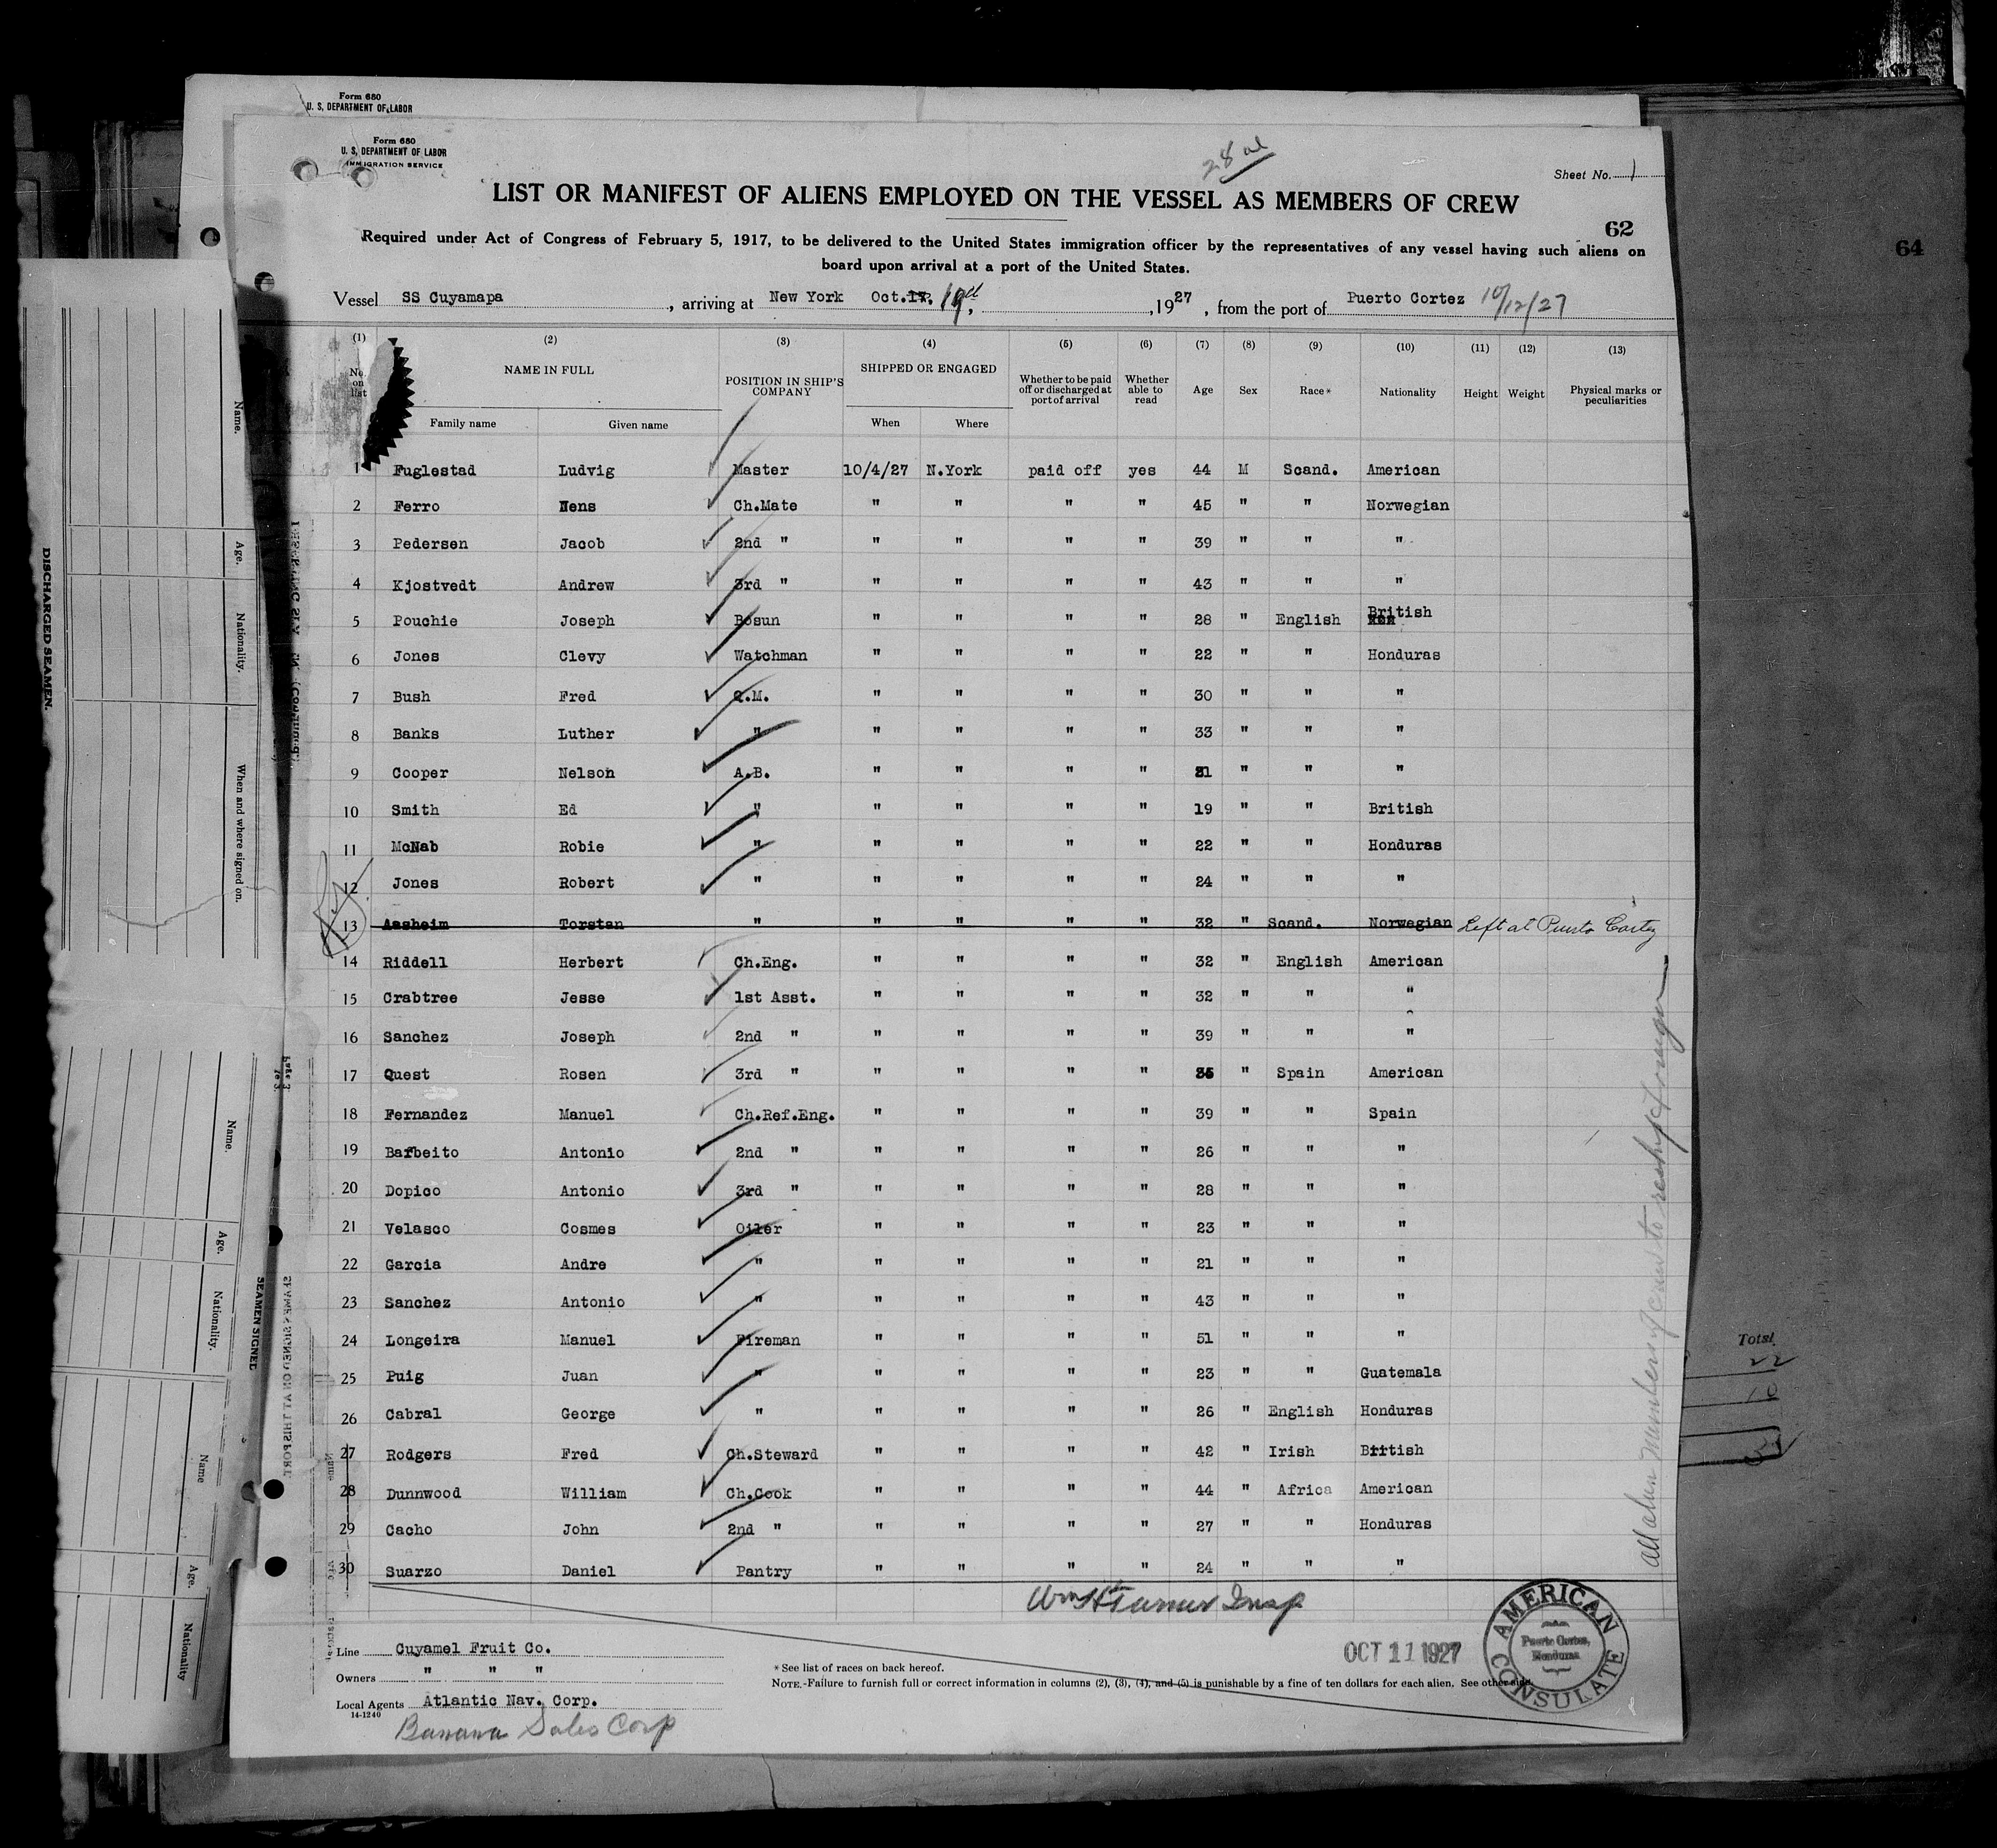 Form 680
U. S. DEPARTMENT OF LABOR
Form 680
U. S. DEPARTMENT OF LABOR
IMMIGRATION SERVICE
Sheet No. 1
LIST OR MANIFEST OF ALIENS EMPLOYED ON THE VESSEL AS MEMBERS OF CREW
62
64
Required under Act of Congress of February 5, 1917, to be delivered to the United States immigration officer by the representatives of any vessel having such aliens on
board upon arrival at a port of the United States.
Vessel SS Cuyamapa, arriving at New York Oct. 19th, 1927, from the port of Puerto Cortez 10/12/27
(1) (2) (3) (4) (5) (6) (7) (8) (9) (10) (11) (12) (13)
No. on list NAME IN FULL POSITION IN SHIP'S COMPANY SHIPPED OR ENGAGED Whether to be paid off or discharged at port of arrival Whether able to read Age Sex Race* Nationality Height Weight Physical marks or peculiarities
Family name Given name When Where
1 Fuglestad Ludvig Master 10/4/27 N.York paid off yes 44 M Scand. American
2 Ferro Nens Ch.Mate " " " " 45 " " Norwegian
3 Pedersen Jacob 2nd " " " " " 39 " " "
4 Kjostvedt Andrew 3rd " " " " " 43 " " "
5 Pouchie Joseph Bosun " " " " 28 " English British
6 Jones Clevy Watchman " " " " 22 " " Honduras
7 Bush Fred Q.M. " " " " 30 " " "
8 Banks Luther " " " " " 33 " " "
9 Cooper Nelson A.B. " " " " 21 " " "
10 Smith Ed " " " " " 19 " " British
11 McNab Robie " " " " " 22 " " Honduras
12 Jones Robert " " " " " 24 " " "
13 Aasheim Torstan " " " " " 32 " Scand. Norwegian Left at Puerto Cortez
14 Riddell Herbert Ch.Eng. " " " " 32 " English American
15 Crabtree Jesse 1st Asst. " " " " 32 " " "
16 Sanchez Joseph 2nd " " " " " 39 " " "
17 Quest Rosen 3rd " " " " " 35 " Spain American
18 Fernandez Manuel Ch.Ref.Eng. " " " " 39 " " Spain
19 Barbeito Antonio 2nd " " " " " 26 " " "
20 Dopico Antonio 3rd " " " " " 28 " " "
21 Velasco Cosmes Oiler " " " " 23 " " "
22 Garcia Andre " " " " " 21 " " "
23 Sanchez Antonio " " " " " 43 " " "
24 Longeira Manuel Fireman " " " " 51 " " "
25 Puig Juan " " " " " 23 " " Guatemala
26 Cabral George " " " " " 26 " English Honduras
27 Rodgers Fred Ch.Steward " " " " 42 " Irish British
28 Dunnwood William Ch.Cook " " " " 44 " Africa American
29 Cacho John 2nd " " " " " 27 " " Honduras
30 Suarzo Daniel Pantry " " " " 24 " " "
All alien members of crew to reship foreign
Wm H Turner Insp
OCT 11 1927
AMERICAN CONSULATE
Puerto Cortes, Honduras
Line Cuyamel Fruit Co.
Owners " " "
Local Agents Atlantic Nav. Corp.
14-1240
Banana Sales Corp
*See list of races on back hereof.
NOTE.-Failure to furnish full or correct information in columns (2), (3), (4), and (5) is punishable by a fine of ten dollars for each alien. See other side.
Total
22
10
DISCHARGED SEAMEN.
Name.
Age.
Nationality.
When and where signed on.
SEAMEN SIGNED
Name.
Age.
Nationality.
Name
Age.
Nationality
SEAMEN SIGNED ON AT THIS PORT.